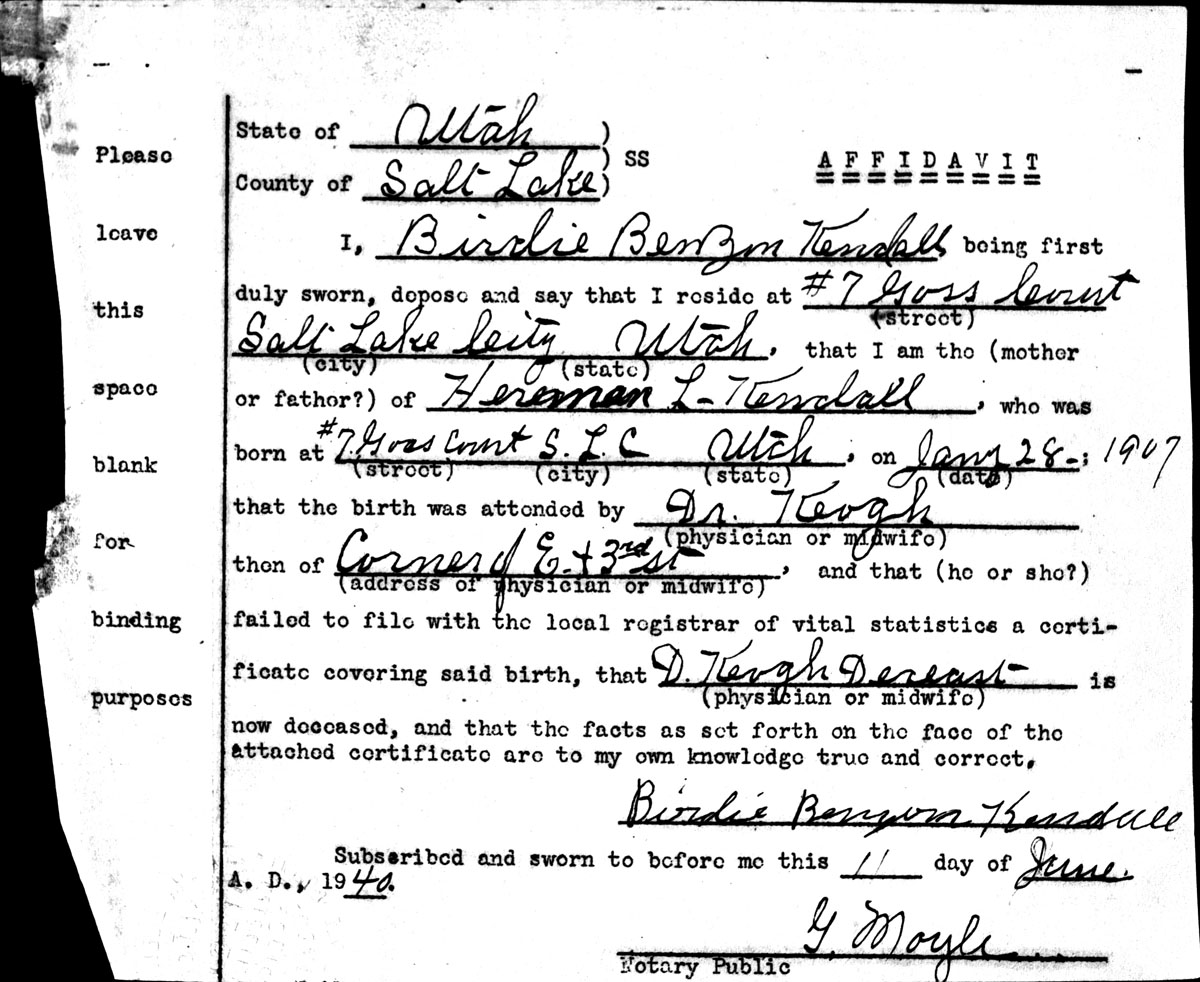 State of Utah )
) SS
County of Salt Lake )
A F F I D A V I T
Please
leave
this
space
blank
for
binding
purposes
I, Birdie Benzon Kendall, being first
duly sworn, depose and say that I reside at #7 Goss Court
(street)
Salt Lake City Utah, that I am the (mother
(city) (state)
or father?) of Hereman L- Kendall, who was
born at #7 Goss Court S. L. C Utah, on Jany 28-; 1907
(street) (city) (state) (date)
that the birth was attended by Dr. Keogh
(physician or midwife)
then of Corner of E. + 3rd st, and that (he or she?)
(address of physician or midwife)
failed to file with the local registrar of vital statistics a certi-
ficate covering said birth, that D. Keogh is
(physician or midwife)
now deceased, and that the facts as set forth on the face of the
attached certificate are to my own knowledge true and correct.
Birdie Benzon Kendall
Subscribed and sworn to before me this 11 day of June.
A. D., 1940.
G. Moyle
Notary Public